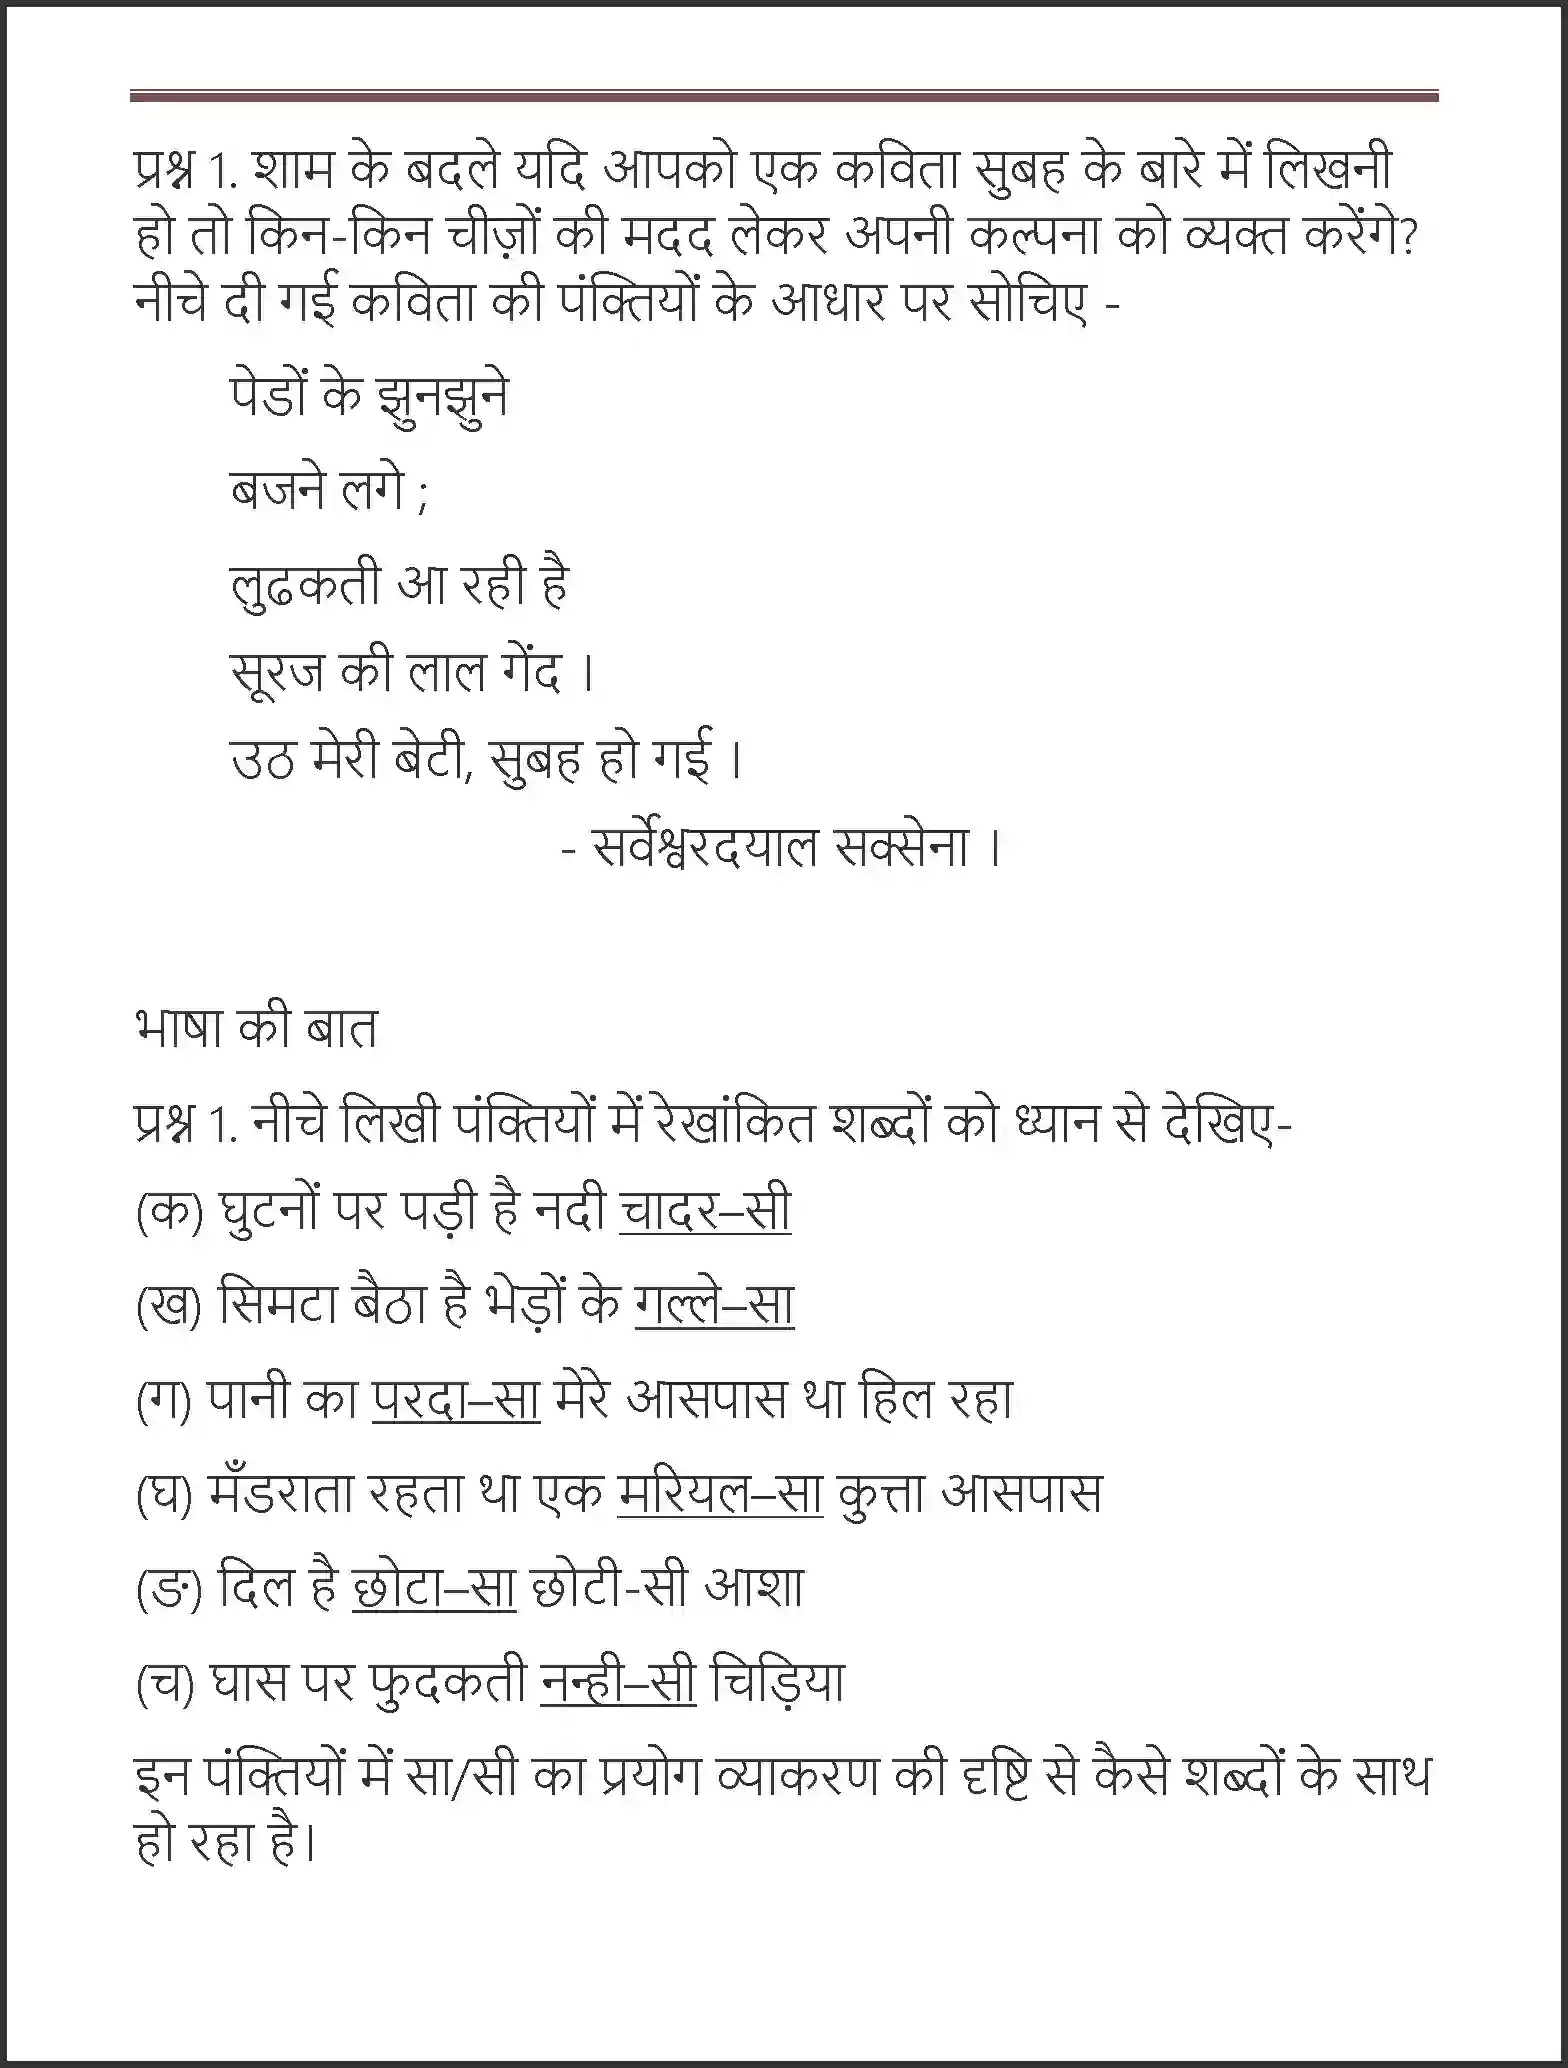 प्रश्न 1. शाम के बदले यदि आपको एक कविता सुबह के बारे में लिखनी
हो तो किन-किन चीज़ों की मदद लेकर अपनी कल्पना को व्यक्त करेंगे?
नीचे दी गई कविता की पंक्तियों के आधार पर सोचिए -
पेडों के झुनझुने
बजने लगे ;
लुढकती आ रही है
सूरज की लाल गेंद ।
उठ मेरी बेटी, सुबह हो गई ।
- सर्वेश्वरदयाल सक्सेना ।
भाषा की बात
प्रश्न 1. नीचे लिखी पंक्तियों में रेखांकित शब्दों को ध्यान से देखिए-
(क) घुटनों पर पड़ी है नदी चादर–सी
(ख) सिमटा बैठा है भेड़ों के गल्ले–सा
(ग) पानी का परदा–सा मेरे आसपास था हिल रहा
(घ) मँडराता रहता था एक मरियल–सा कुत्ता आसपास
(ङ) दिल है छोटा–सा छोटी-सी आशा
(च) घास पर फुदकती नन्ही–सी चिड़िया
इन पंक्तियों में सा/सी का प्रयोग व्याकरण की दृष्टि से कैसे शब्दों के साथ
हो रहा है।